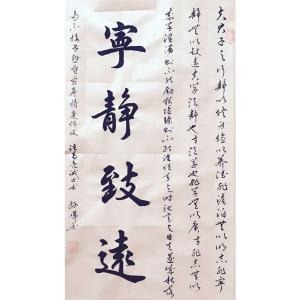 夫君子之行靜以修身儉以養德非淡泊無以明志非寧
靜無以致遠夫學須靜也才須學也非學無以廣才非志無以
成學淫漫則不能勵精險躁則不能治性年與時馳意與日去遂成枯落
寧靜致遠
多不接世悲守窮廬將復何及 諸葛亮誡子書